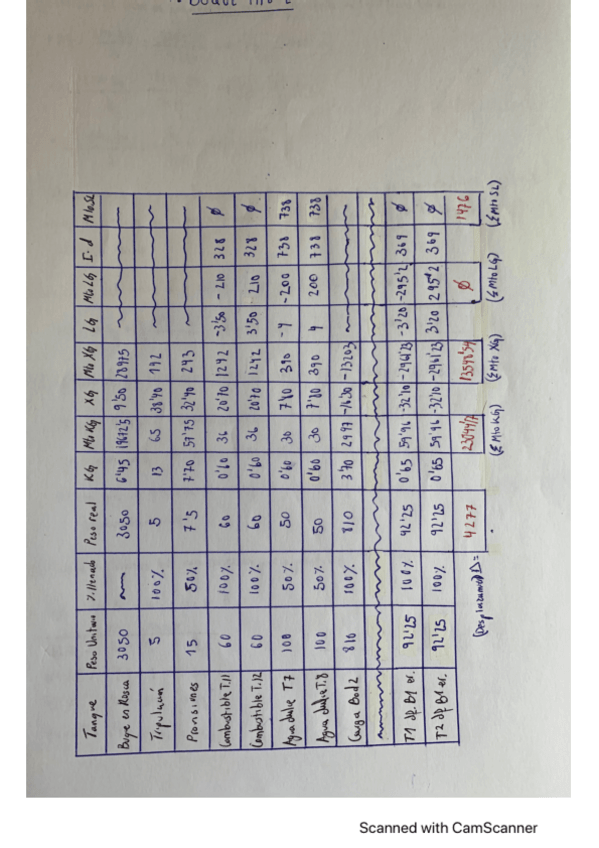 Tanque Peso Unitario % llenado Peso real KG Mto KG XG Mto XG LG Mto LG I·d Mto SL
Buque en Rosca 3050 3050 6'45 19672'5 9'50 28975
Tripulación 5 100% 5 13 65 38'40 192
Provisiones 15 50% 7'5 7'70 57'75 32'40 243
Combustible T.11 60 100% 60 0'60 36 20'70 1242 -3'50 -210 328 ∅
Combustible T.12 60 100% 60 0'60 36 20'70 1242 3'50 210 328 ∅
Agua dulce T7 100 50% 50 0'60 30 7'80 390 -4 -200 738 738
Agua dulce T.8 100 50% 50 0'60 30 7'80 390 4 200 738 738
Carga Bod 2 810 100% 810 3'70 2997 -16'30 -13203
T1 dp. B1 er. 92'25 100% 92'25 0'65 59'96 -32'10 -2961'23 -3'20 -295'2 369 ∅
T2 dp B1 er. 92'25 100% 92'25 0'65 59'96 -32'10 -2961'23 3'20 295'2 369 ∅
4277 13598'54 ∅ 1476
(Desplazamiento Δ= (ΣMto KG) (ΣMto XG) (ΣMto LG) (ΣMto SL)
Scanned with CamScanner